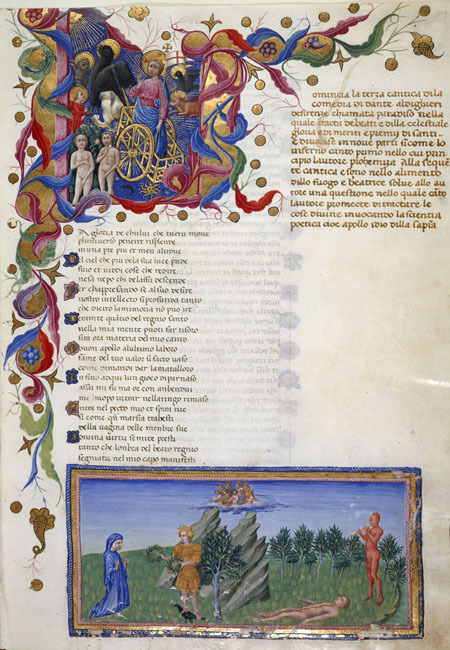 omincia la terza cantica dlla
comedia di dante aldighieri
chiamata paradiso nella
quale tracti de beati e dlla celestiale
gloria di meriti e premy di santi
in nove parti sicome lo
inferno canto primo nel cui prin
cipio lautore alla seque
te cantica e sono nello alimento
dllo fuogo e beatrice solve allo au
tore una questione nello quale cato
lautore promecte di tractare le
cose divine invocando la scientia
poetica cioe apollo idio dlla sapia
A gloria de chului che tucto move
per penetra e risplende
in una pte piu et men altrove
el ciel che piu dela sua luce pnde
fuo et vidi cose che redire
ne sa nepo chi dela su descende
per chappresando se al suo desire
nostro intellecto si pfonda tanto
che dietro la memoria no puo ire
quatio del regnio santo
nella mia mente puoti far
sira ora materia del mio canto
buon apollo alultimo labore
fame del tuo valor si facto vaso
come dimandi dar lamatalloro
in sino aqui lun giogo di parnaso
assai mi fu ma or con anbendui
me huopo intrar nellaringo rimaso
entra nel pecto mio et spira tue
si come qn marsia traesti
della vagina delle membre sue
o divina virtu se mite presti
tanto che lonbra del beato regnio
segnata nel mio capo manifesti